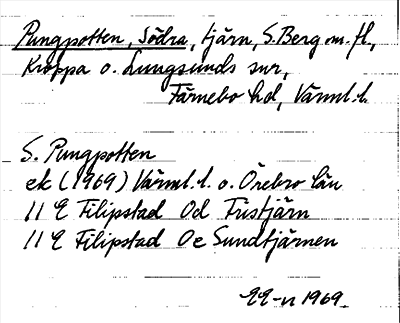 Pungpotten, Södra, tjärn, S. Berg m. fl,
Kroppa o. Lungsunds snr,
Färnebo hd, Värml. l.
S. Pungpotten
ek (1969) Värml. l. o. Örebro län
11 E Filipstad 0d Tristjärn
11 E Filipstad 0e Sundtjärnen
1969